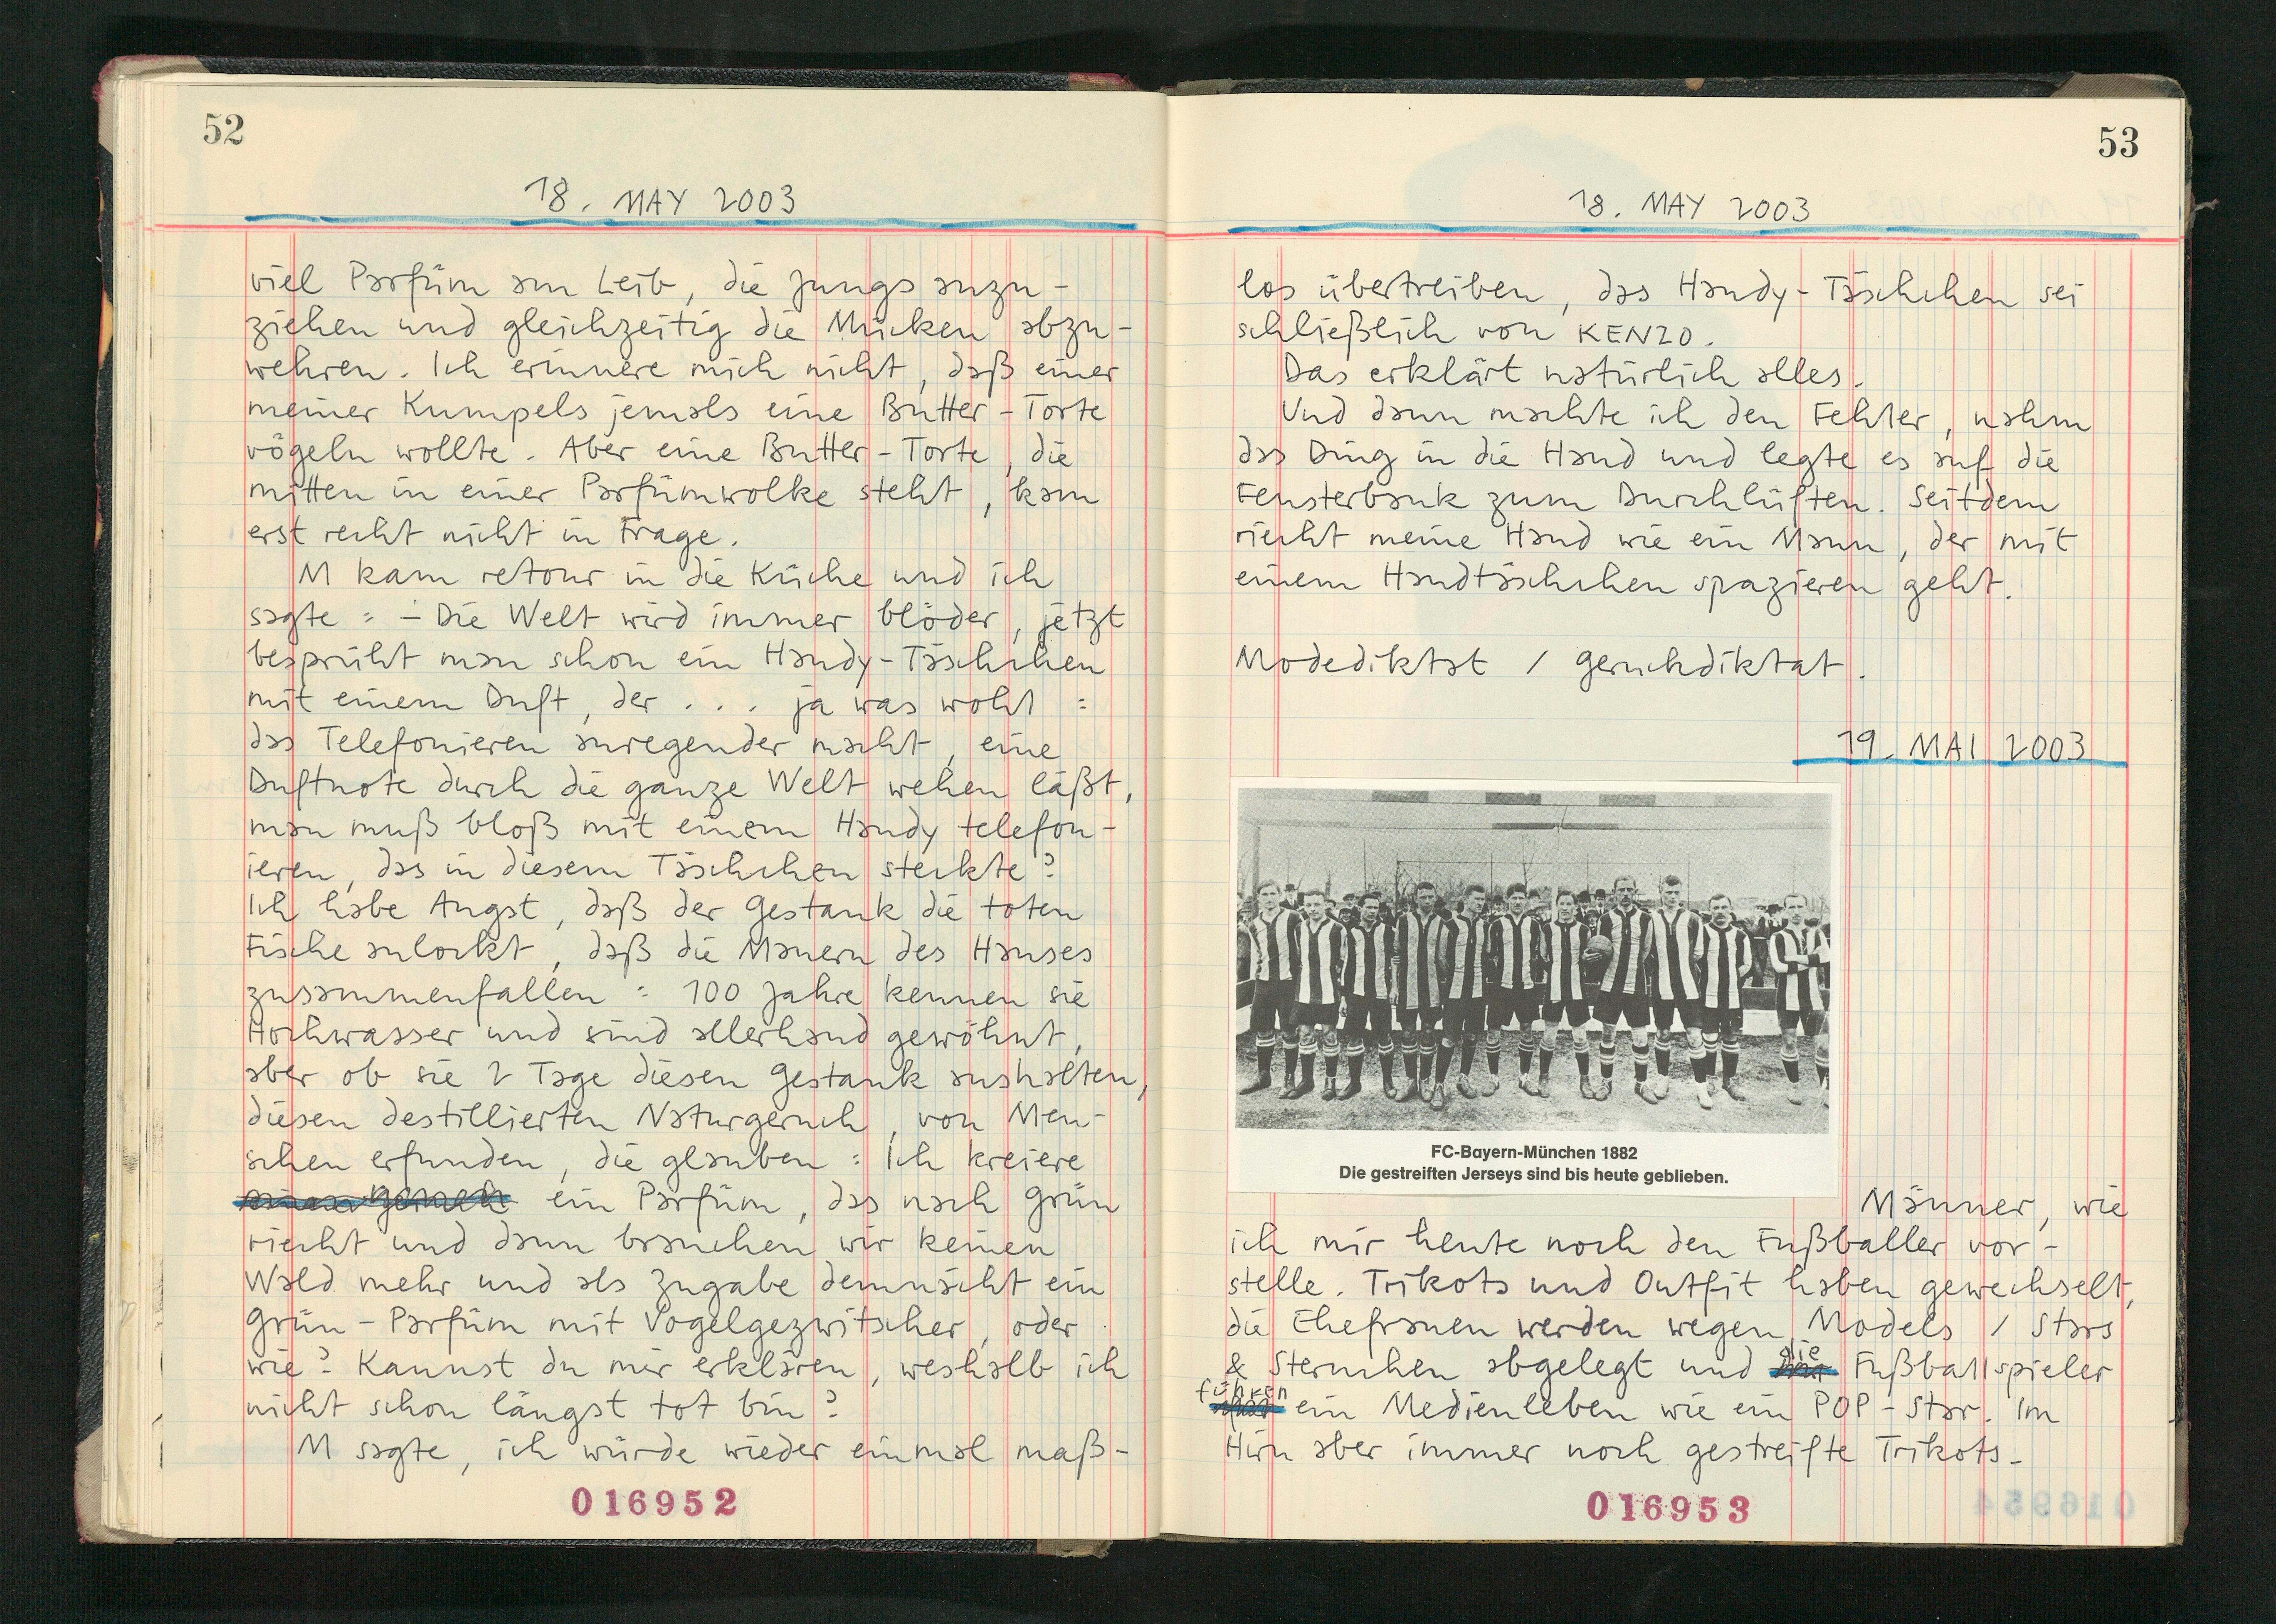 52
18. MAY 2003
viel Parfüm am Leib, die Jungs anzu-
ziehen und gleichzeitig die Mücken abzu-
wehren. Ich erinnere mich nicht, daß einer
meiner Kumpels jemals eine Butter-Torte
vögeln wollte. Aber eine Butter-Torte, die
mitten in einer Parfümwolke steht, kam
erst recht nicht in Frage.
M kam retour in die Küche und ich
sagte: – Die Welt wird immer blöder, jetzt
besprüht man schon ein Handy-Täschchen
mit einem Duft, der . . . ja was wohl :
das Telefonieren anregender macht, eine
Duftnote durch die ganze Welt wehen läßt,
man muß bloß mit einem Handy telefon-
ieren, das in diesem Täschchen steckte?
Ich habe Angst, daß der Gestank die toten
Fische anlockt, daß die Mauern des Hauses
zusammenfallen : 100 Jahre kennen sie
Hochwasser und sind allerhand gewöhnt,
aber ob sie 2 Tage diesen Gestank aushalten,
diesen destillierten Naturgeruch, von Men-
schen erfunden, die glauben : Ich kreiere
ein Parfüm, das nach Grün
riecht und dann brauchen wir keinen
Wald mehr und als Zugabe demnächt ein
Grün-Parfüm mit Vogelgezwitscher, oder
wie? Kannst du mir erklären, weshalb ich
nicht schon längst tot bin?
M sagte, ich würde wieder einmal maß-
016952
53
18. MAY 2003
los übertreiben, das Handy-Täschchen sei
schließlich von KENZO.
Das erklärt natürlich alles.
Und dann machte ich den Fehler, nahm
das Ding in die Hand und legte es auf die
Fensterbank zum Durchlüften. Seitdem
riecht meine Hand wie ein Mann, der mit
einem Handtäschchen spazieren geht.
Modediktat / Geruchdiktat.
19. MAI 2003
FC-Bayern-München 1882
Die gestreiften Jerseys sind bis heute geblieben.
Männer, wie
ich mir heute noch den Fußballer vor-
stelle. Trikots und Outfit haben gewechselt,
die Ehefrauen werden wegen Models / Stars
& Sternchen abgelegt und die Fußballspieler
führen ein Medienleben wie ein POP-Star. Im
Hirn aber immer noch gestreifte Trikots.
016953